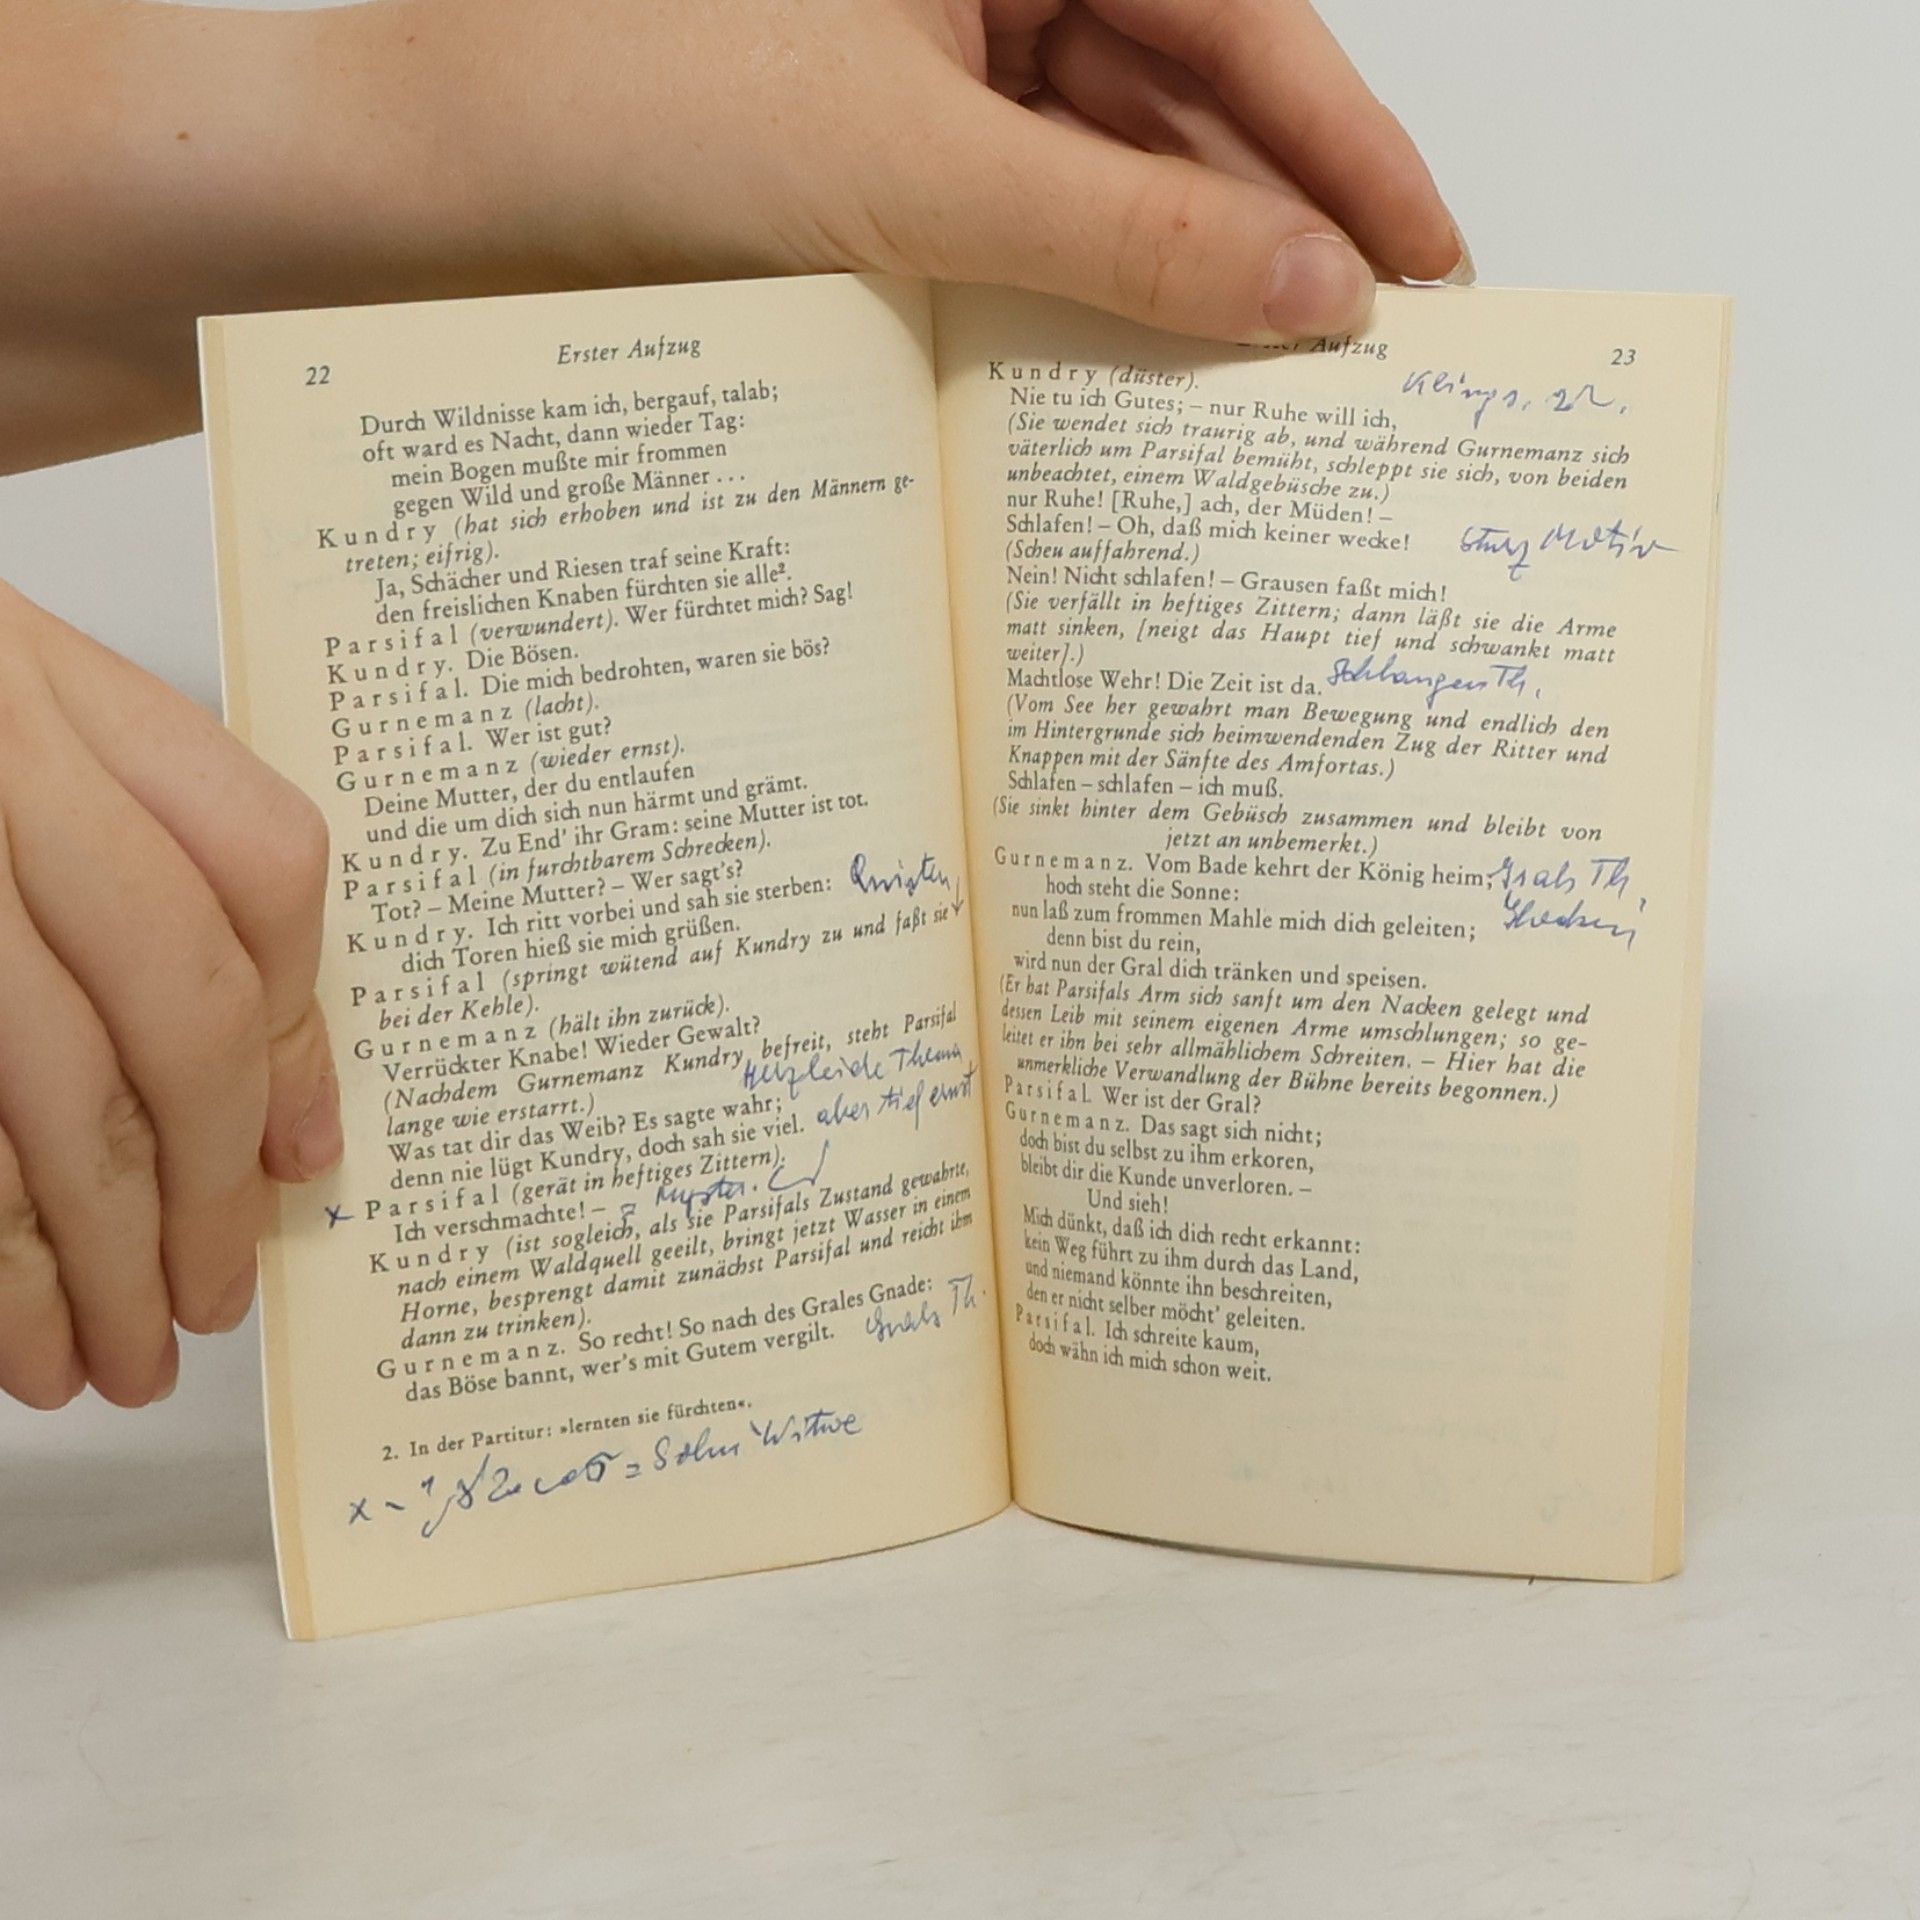 22
Erster Aufzug
Durch Wildnisse kam ich, bergauf, talab;
oft ward es Nacht, dann wieder Tag:
mein Bogen mußte mir frommen
gegen Wild und große Männer . . .
Kundry (hat sich erhoben und ist zu den Männern ge-
treten; eifrig).
Ja, Schächer und Riesen traf seine Kraft:
den freislichen Knaben fürchten sie alle².
Parsifal (verwundert). Wer fürchtet mich? Sag!
Kundry. Die Bösen.
Parsifal. Die mich bedrohten, waren sie bös?
Gurnemanz (lacht).
Parsifal. Wer ist gut?
Gurnemanz (wieder ernst).
Deine Mutter, der du entlaufen
und die um dich sich nun härmt und grämt.
Kundry. Zu End' ihr Gram: seine Mutter ist tot.
Parsifal (in furchtbarem Schrecken).
Tot? – Meine Mutter? – Wer sagt's?
Kundry. Ich ritt vorbei und sah sie sterben:
dich Toren hieß sie mich grüßen.
Parsifal (springt wütend auf Kundry zu und faßt sie
bei der Kehle).
Gurnemanz (hält ihn zurück).
Verrückter Knabe! Wieder Gewalt?
(Nachdem Gurnemanz Kundry befreit, steht Parsifal
lange wie erstarrt.)
Herzeleide Thema
Was tat dir das Weib? Es sagte wahr;
denn nie lügt Kundry, doch sah sie viel. aber tief ernst
x Parsifal (gerät in heftiges Zittern).
Ich verschmachte! –
Kundry (ist sogleich, als sie Parsifals Zustand gewahrte,
nach einem Waldquell geeilt, bringt jetzt Wasser in einem
Horne, besprengt damit zunächst Parsifal und reicht ihm
dann zu trinken).
Gurnemanz. So recht! So nach des Grales Gnade:
das Böse bannt, wer's mit Gutem vergilt. Grals Th.
2. In der Partitur: »lernten sie fürchten«.
x = Sohn Witwe
Erster Aufzug
23
Kundry (düster).
Klings.
Nie tu ich Gutes; – nur Ruhe will ich,
(Sie wendet sich traurig ab, und während Gurnemanz sich
väterlich um Parsifal bemüht, schleppt sie sich, von beiden
unbeachtet, einem Waldgebüsche zu.)
nur Ruhe! [Ruhe,] ach, der Müden! –
Schlafen! – Oh, daß mich keiner wecke! Sturz Motiv
(Scheu auffahrend.)
Nein! Nicht schlafen! – Grausen faßt mich!
(Sie verfällt in heftiges Zittern; dann läßt sie die Arme
matt sinken, [neigt das Haupt tief und schwankt matt
weiter].)
Machtlose Wehr! Die Zeit ist da. Schlangen Th.
(Vom See her gewahrt man Bewegung und endlich den
im Hintergrunde sich heimwendenden Zug der Ritter und
Knappen mit der Sänfte des Amfortas.)
Schlafen – schlafen – ich muß.
(Sie sinkt hinter dem Gebüsch zusammen und bleibt von
jetzt an unbemerkt.)
Gurnemanz. Vom Bade kehrt der König heim; Grals Th.
hoch steht die Sonne:
nun laß zum frommen Mahle mich dich geleiten; Glocken
denn bist du rein,
wird nun der Gral dich tränken und speisen.
(Er hat Parsifals Arm sich sanft um den Nacken gelegt und
dessen Leib mit seinem eigenen Arme umschlungen; so ge-
leitet er ihn bei sehr allmählichem Schreiten. – Hier hat die
unmerkliche Verwandlung der Bühne bereits begonnen.)
Parsifal. Wer ist der Gral?
Gurnemanz. Das sagt sich nicht;
doch bist du selbst zu ihm erkoren,
bleibt dir die Kunde unverloren. –
Und sieh!
Mich dünkt, daß ich dich recht erkannt:
kein Weg führt zu ihm durch das Land,
und niemand könnte ihn beschreiten,
den er nicht selber möcht' geleiten.
Parsifal. Ich schreite kaum,
doch wähn ich mich schon weit.